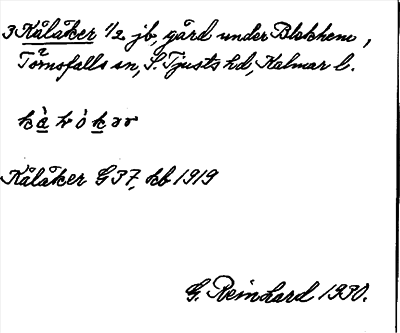 3 Kålåker 1/2 jb, gård under Blekhem,
Törnsfalls sn, S. Tjusts hd, Kalmar l.
Kålåker G37, kb 1919
G. Reinhard 1930.